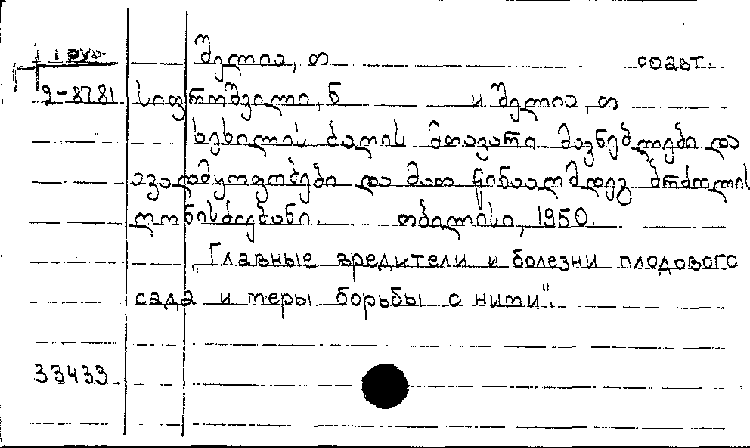 შელია, თ соавт.
2-8781 სიფროშვილი, ნ и შელია, თ
ხეხილის ბაღის მთავარი მავნებლები და
ავადმყოფობები და მათ წინააღმდეგ ბრძოლის
ღონისძიებანი. თბილისი, 1950.
„Главные вредители и болезни плодового
сада и меры борьбы с ними".
33433